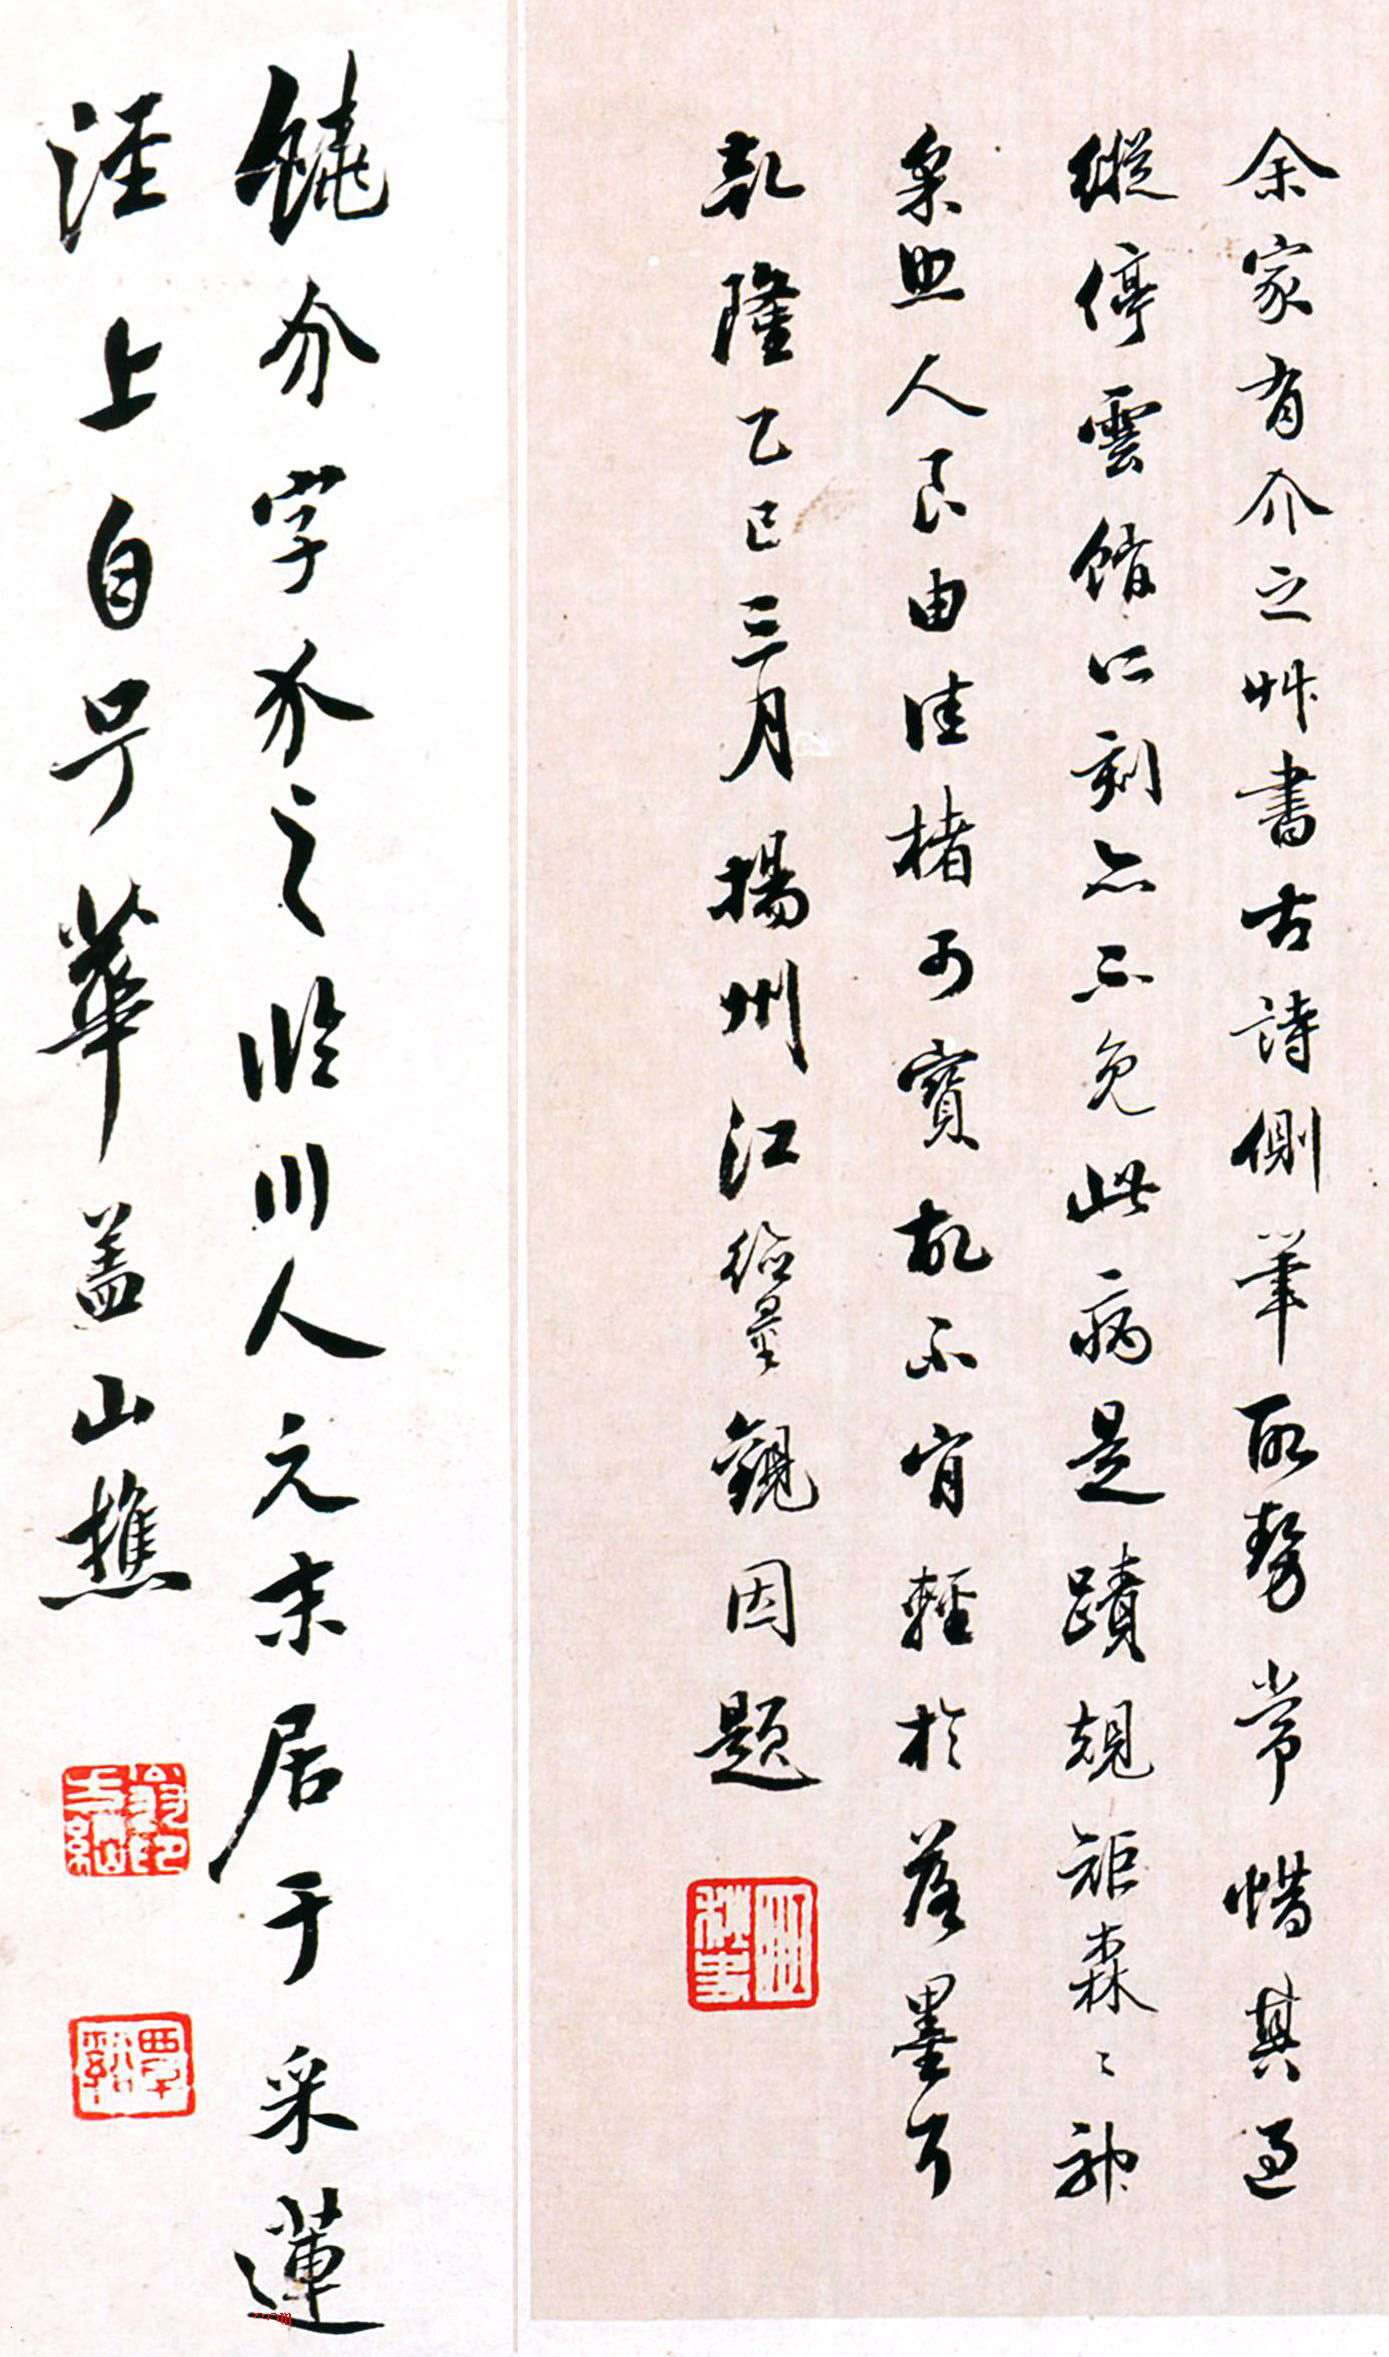 余家有介之艸書古詩側筆取勢常惜其過
縱停雲館所刻亦不免此病是蹟規矩森〻神
采照人良由佳楮可寶故不肯輕於落墨耳
乾隆乙巳三月揚州江德量觀因題
秋史
饒介字介之臨川人元末居于采蓮
涇上自号華盖山樵
翁方綱印
覃谿